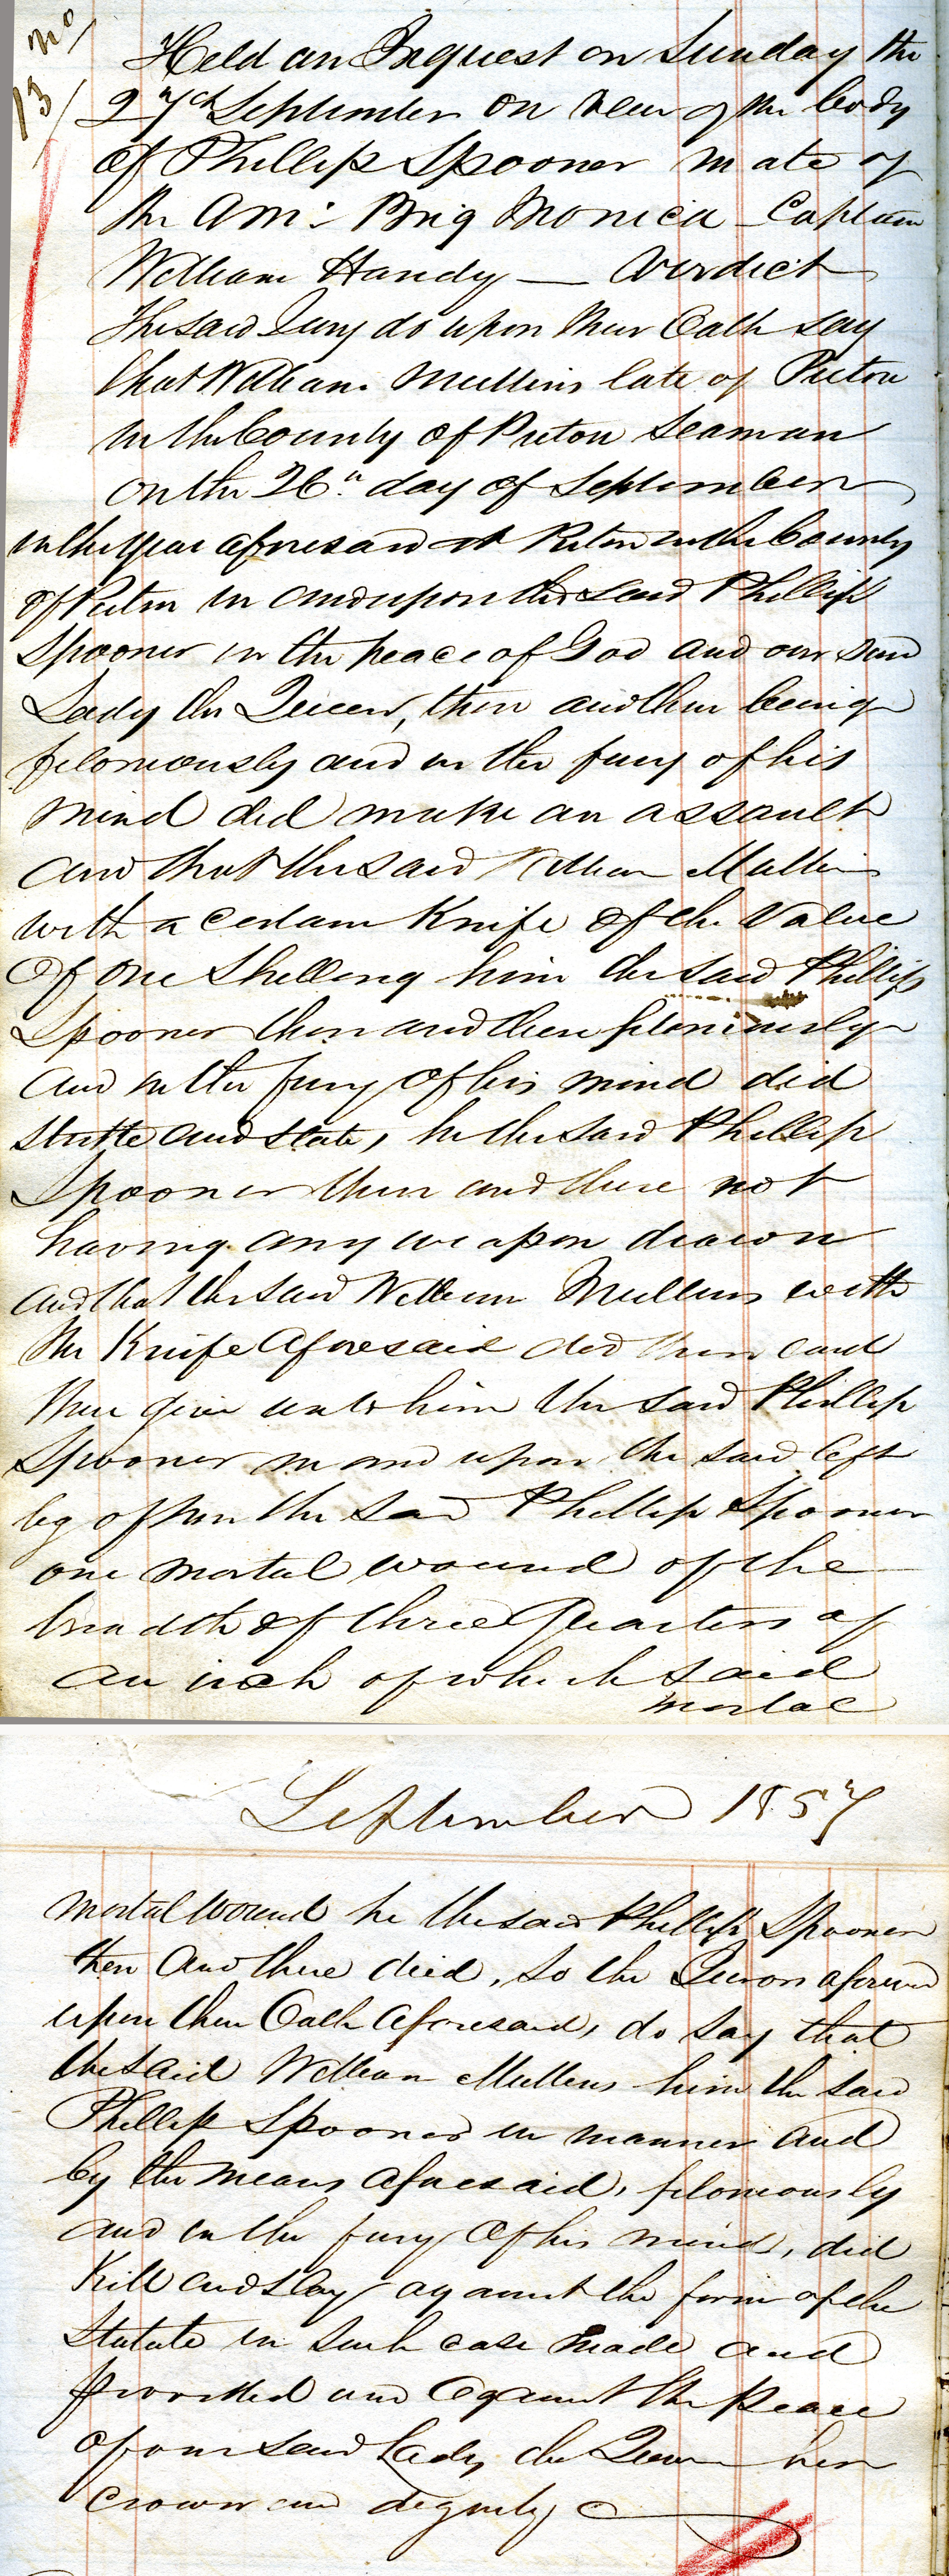 No/
13/
Held an Inquest on Sunday the
27th September on view of the body
of Phillip Spooner mate of
the Am: Brig Monica - Captain
William Handy — Verdict
The said Jury do upon their Oath say
that William Mullins late of Picton
in the County of Picton Seaman
on the 26" day of September
in the year aforesaid at Picton in the County
of Picton in and upon the said Phillip
Spooner in the peace of God and our said
Lady the Queen, then and there being
feloniously and in the fury of his
mind did make an assault
and that the said William Mullins
with a certain Knife of the Value
of one Shilling him the said Phillip
Spooner then and there feloniously
and in the fury of his mind did
strike and stab, he the said Phillip
Spooner then and there not
having any weapon drawn
and that the said William Mullins with
the Knife aforesaid did then and
there give unto him the said Phillip
Spooner in and upon the said left
leg of him the said Phillip Spooner
one mortal wound of the
breadth of three Quarters of
an inch of which said
mortal
September 1857
mortal wound he the said Phillip Spooner
then and there died, so the Jurors aforesaid
upon their Oath aforesaid, do say that
the said William Mullins him the said
Phillip Spooner in manner and
by the means aforesaid, feloniously
and in the fury of his mind, did
Kill and slay against the form of the
Statute in such case made and
provided and against the Peace
of our said Lady the Queen her
crown and dignity